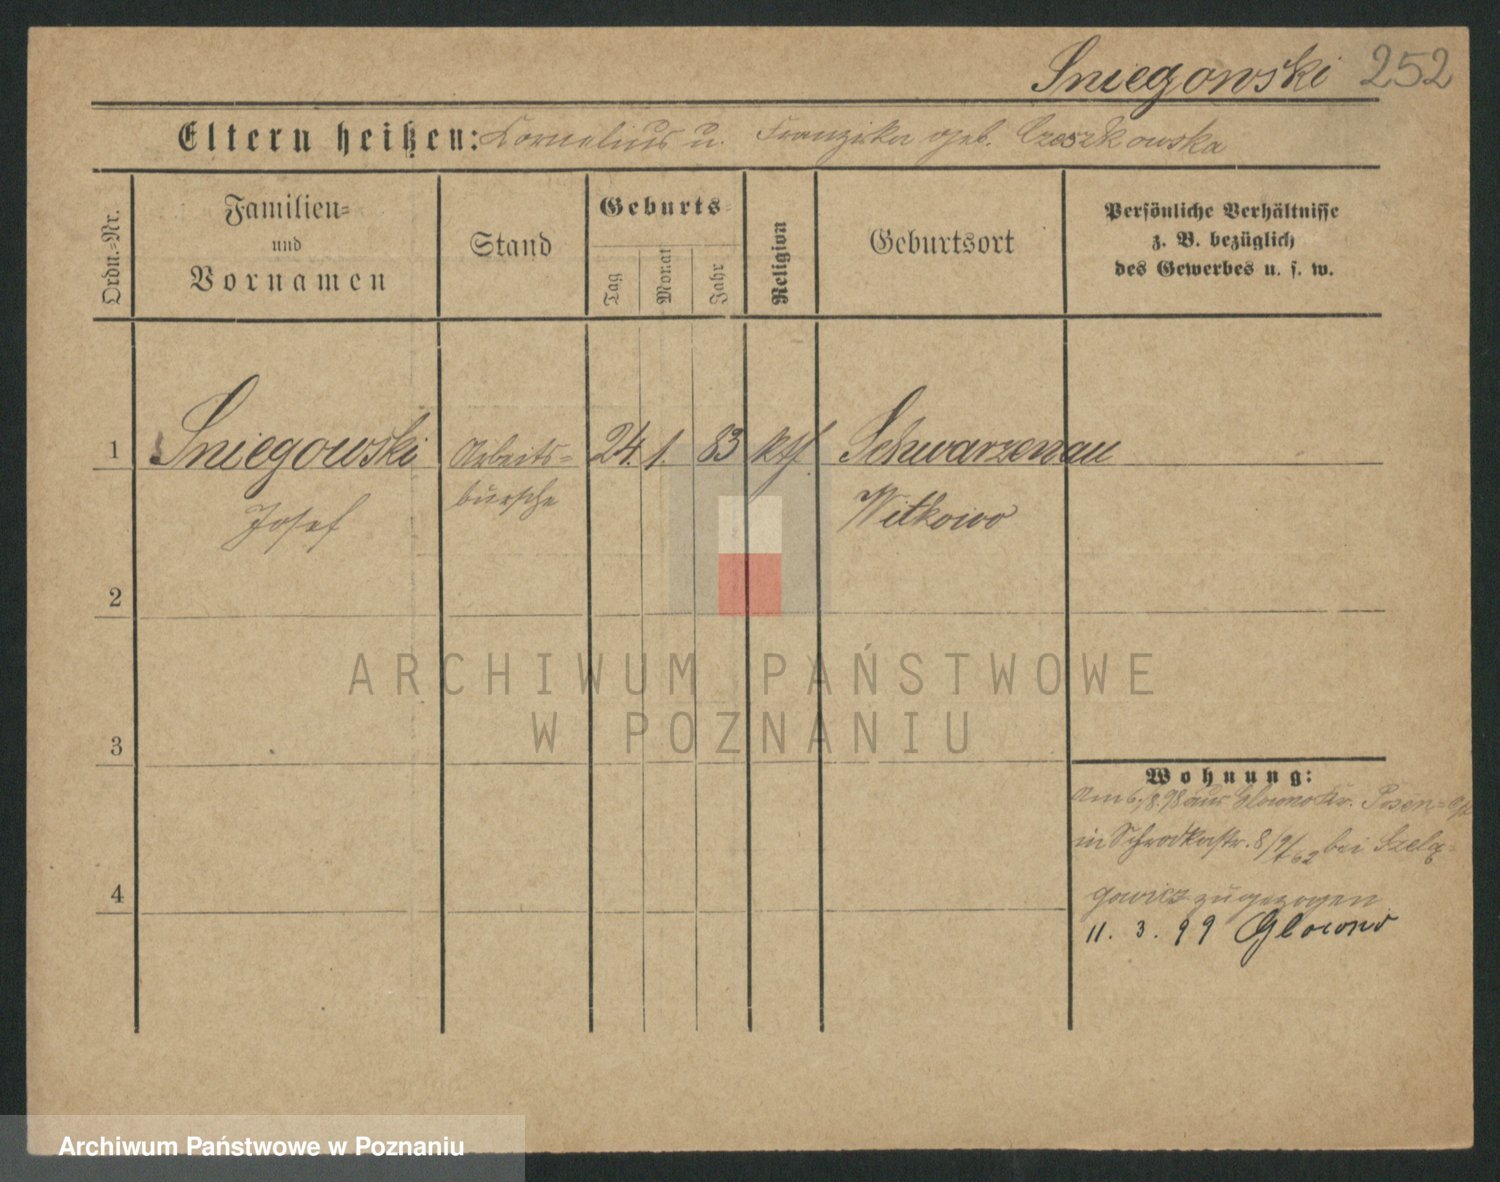 Sniegowski 252
Eltern heißen: Cornelius u. Franziska geb. Czeszkowska
Ordn.-Nr.
Familien-
und
Vornamen
Stand
Geburts-
Tag
Monat
Jahr
Religion
Geburtsort
Persönliche Verhältnisse
z. B. bezüglich
des Gewerbes u. s. w.
1 Sniegowski Arbeits- 24. 1. 83 kth. Schwarzenau
Josef bursche Witkowo
2
ARCHIWUM PAŃSTWOWE
W POZNANIU
3
Wohnung:
Am 6./8. 98 aus Glowno Kr. Posen-
in Schrodkastr. 8/9 bei Szela-
gowicz zugezogen
4
11. 3. 99 Glowno
Archiwum Państwowe w Poznaniu